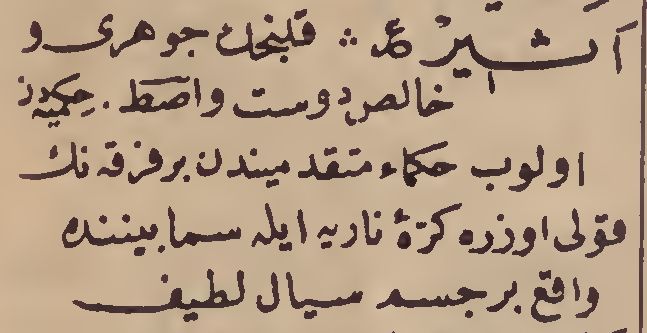 اَلْاَثِيرُ ع ؞ قلنجك جوهرى و
خالص دوست واصط. حكميه دن
اولوب حكماء متقدميندن بر فرقه نك
قولى اوزره كرۀ ناريه ايله سما بيننده
واقع بر جسم سيال لطيف